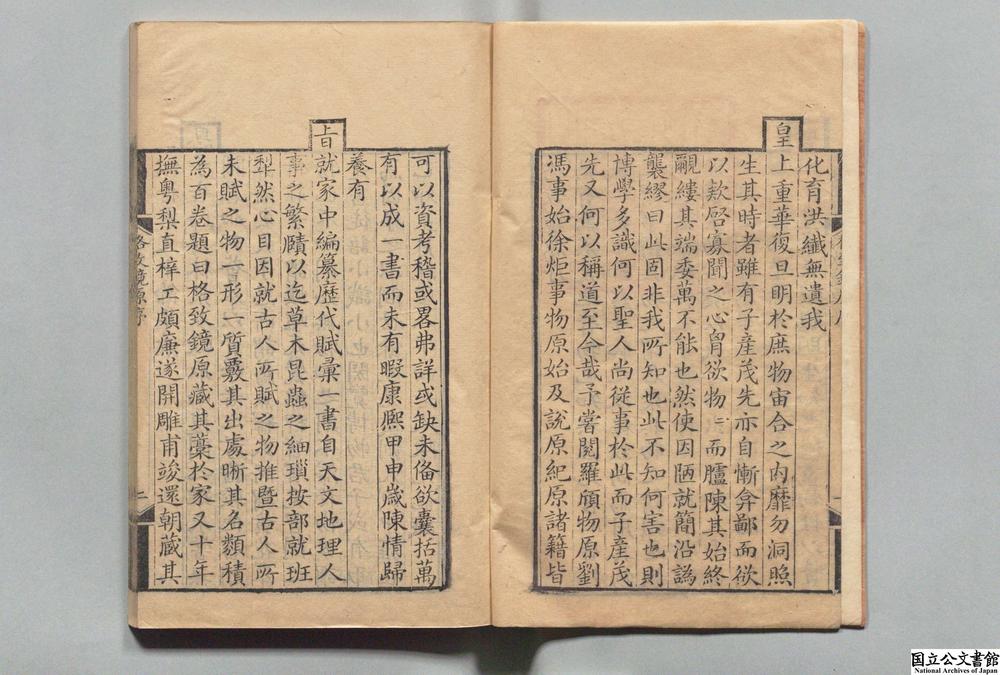 化育洪纖無遺我
皇
上重華復旦明於庶物宙合之內靡勿洞照
生其時者雖有子產茂先亦自慚弇鄙而欲
以欵啓寡聞之心胷欲物一一而臚陳其始終
覼縷其端委萬不能也然使因陋就簡沿譌
襲繆曰此固非我所知也此不知何害也則
博學多識何以聖人尚從事於此而子產茂
先又何以稱道至今哉予嘗閱羅頎物原劉
馮事始徐炬事物原始及說原紀原諸籍皆
可以資考稽或畧弗詳或缺未俻欲囊括萬
有以成一書而未有暇康熈甲申歲陳情歸
養有
旨
就家中編纂歷代賦彙一書自天文地理人
事之繁賾以迄草木昆蟲之細瑣按部就班
犁然心目因就古人所賦之物推暨古人所
未賦之物一形一質覈其出處晰其名類積
為百卷題曰格致鏡原藏其藁於家又十年
撫粵梨直梓工頗廉遂開雕甫竣還朝藏其
格致鏡原序
二
国立公文書館
National Archives of Japan